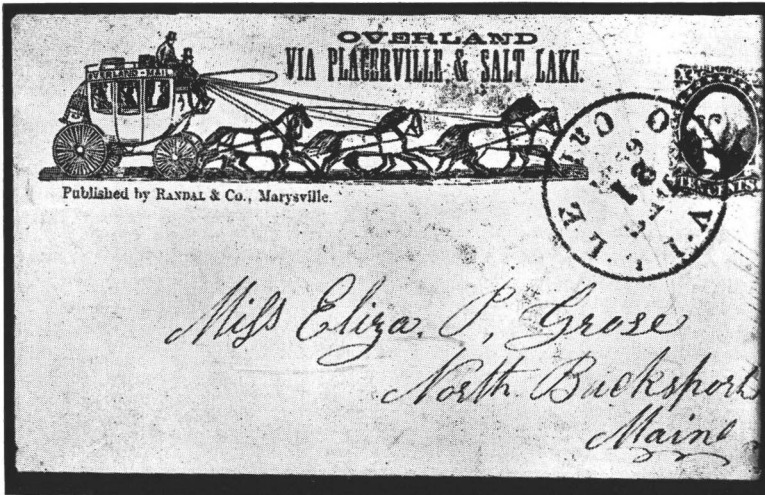 OVERLAND
VIA PLACERVILLE & SALT LAKE.
OVERLAND-MAIL
Published by RANDAL & Co., Marysville.
VILLE
CAL
18
Miss Eliza. P. Grose
North Bucksport
Maine